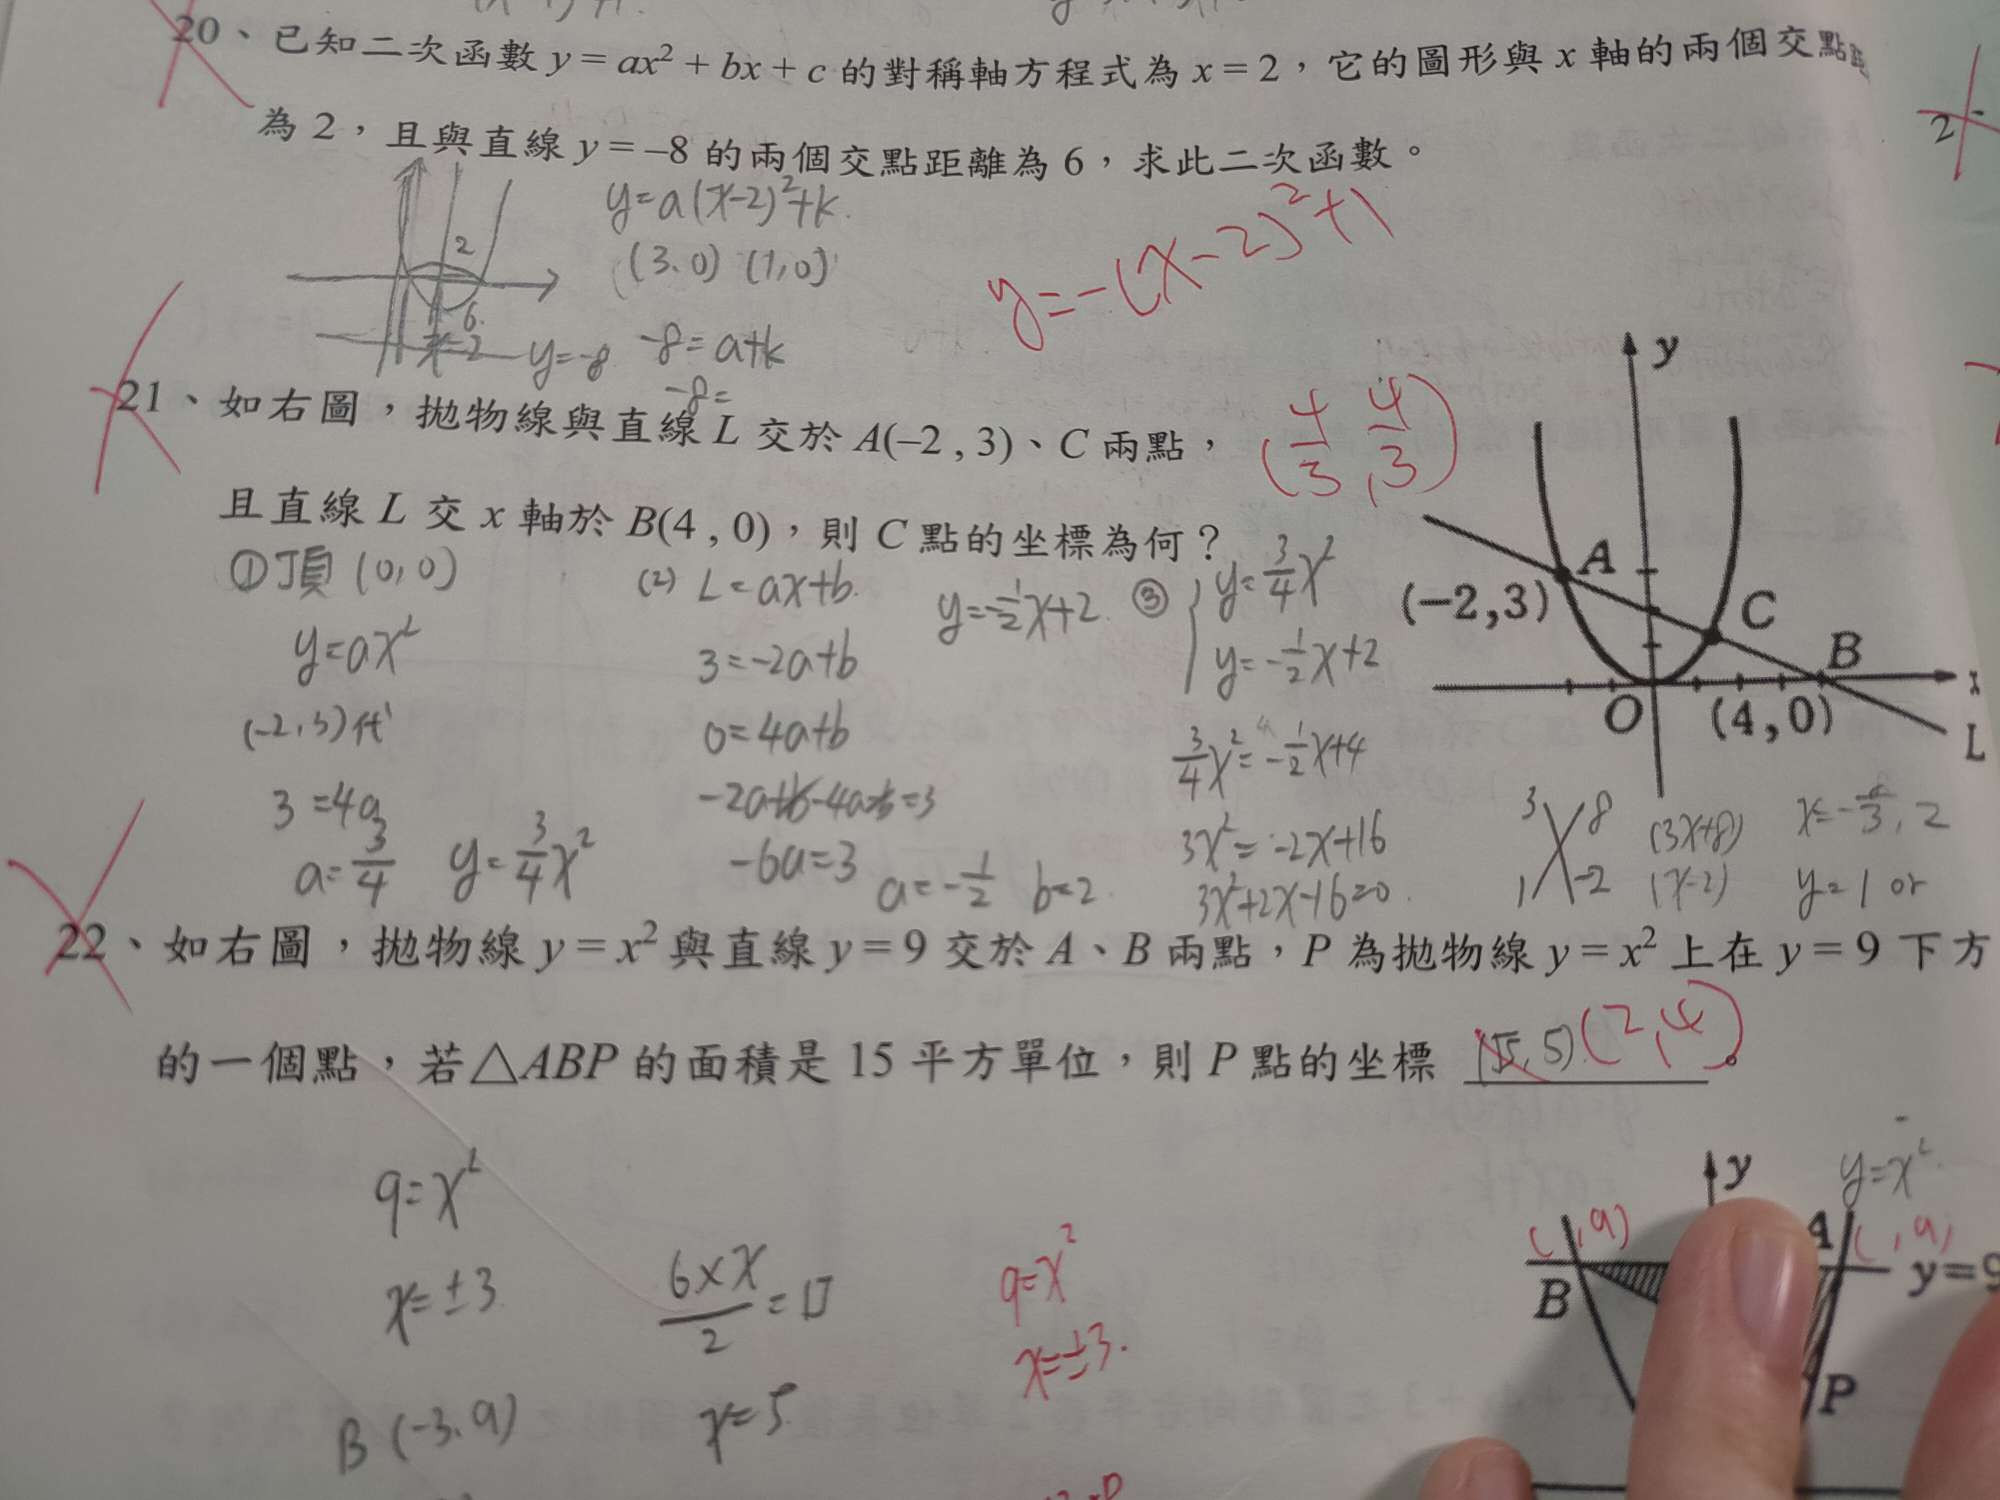 20、已知二次函數 y = ax² + bx + c 的對稱軸方程式為 x = 2，它的圖形與 x 軸的兩個交點
為 2，且與直線 y = –8 的兩個交點距離為 6，求此二次函數。
2
6
x=2
y=-8
y=a(x-2)²+k.
(3.0) (1,0)
-8=a+k
-8=
y=-(x-2)²+1
21、如右圖，拋物線與直線 L 交於 A(–2 , 3)、C 兩點，
(4/3, 4/3)
且直線 L 交 x 軸於 B(4 , 0)，則 C 點的坐標為何？
①頂 (0,0)
y=ax²
(-2,3)代
3=4a
a=3/4 y=3/4x²
(2) L=ax+b.
3=-2a+b
0=4a+b
-2a+b-4a-b=3
-6a=3 a=-1/2 b=2.
y=-1/2x+2.
③ y=3/4x²
y=-1/2x+2
3/4x²=-1/2x+4
3x²=-2x+16
3x²+2x-16=0.
3 8
1 -2
(3x+8)
(x-2)
x=-8/3, 2
y=1 or
y
A
(−2,3)
C
B
O
(4,0)
x
L
22、如右圖，拋物線 y = x² 與直線 y = 9 交於 A、B 兩點，P 為拋物線 y = x² 上在 y = 9 下方
的一個點，若△ABP 的面積是 15 平方單位，則 P 點的坐標 (√5, 5) (2,4)。
9=x²
x=±3
B (-3.9)
6×x/2=15
x=5
9=x²
x=±3.
y
y=x²
( ,9)
A
( ,9)
B
y=9
P
2